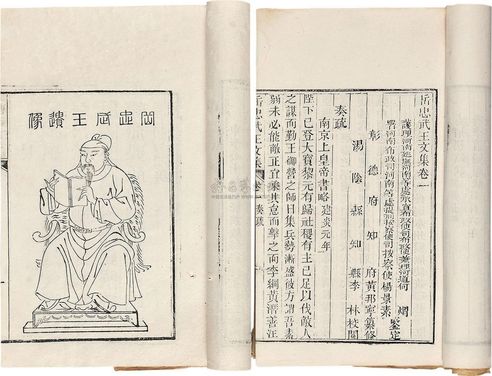 岳忠武王遺像
岳忠武王文集卷一
彰德府知府黃邦寧纂修
湯陰縣知縣李林校閱
奏疏
南京上皇帝書略 建炎元年
陛下已登大寶黎元有歸社稷有主已足以伐敵人
之謀而勤王御營之師日集兵勢漸盛彼方謂吾素
弱未必能敵正宜乘其怠而擊之而李綱黃潛善汪
岳忠武王文集 卷一 奏疏